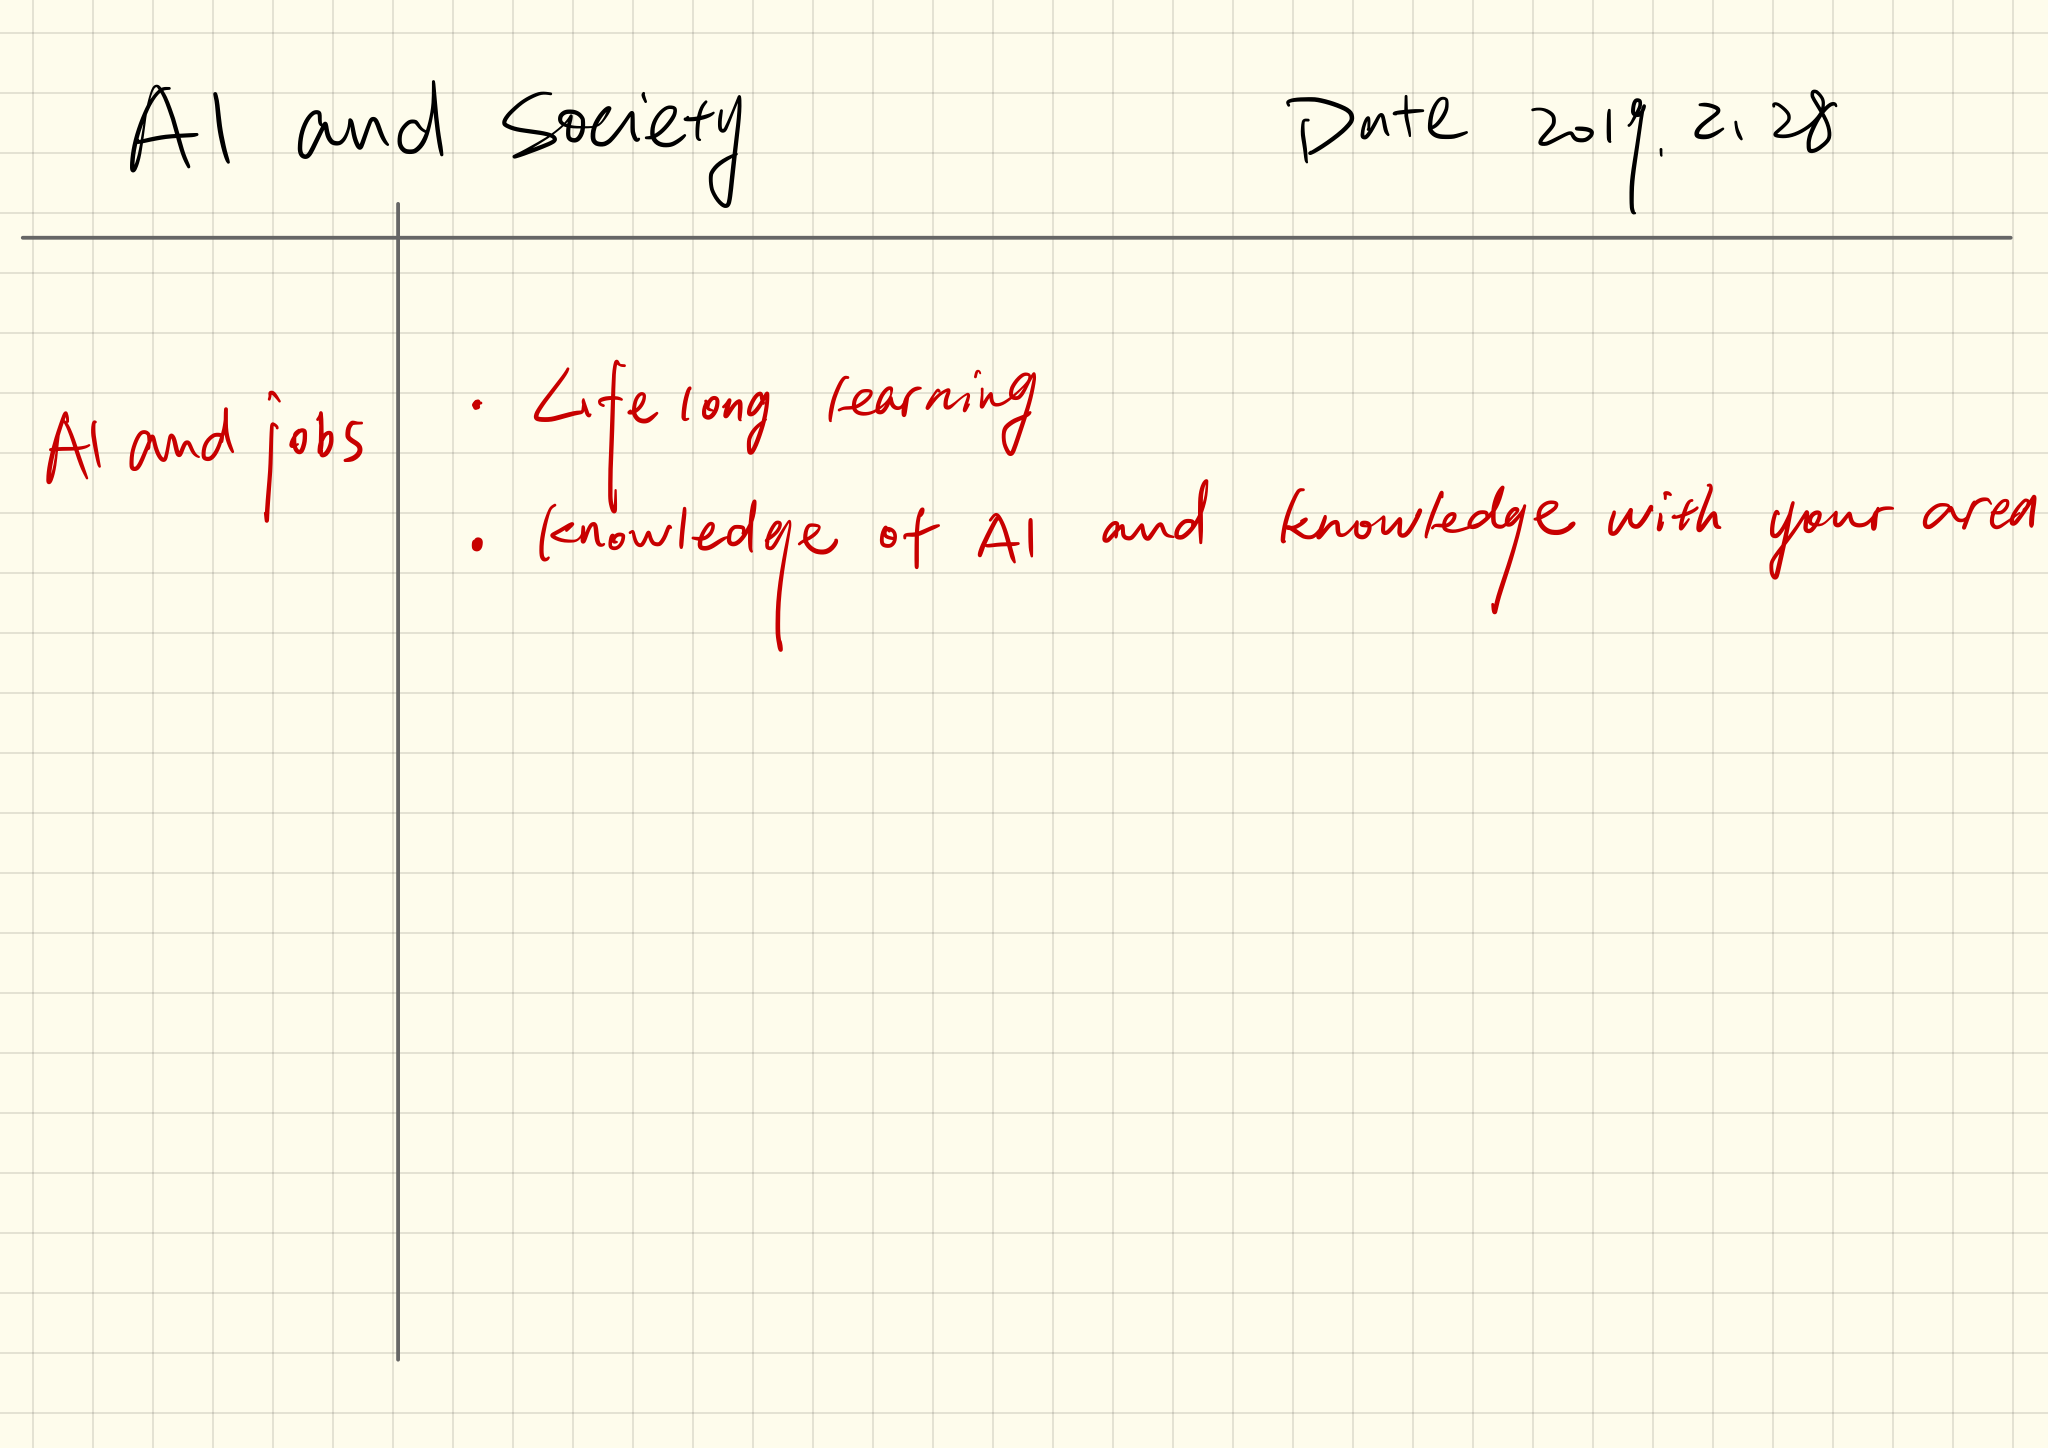 AI and Society Date 2019.2.28
AI and jobs
• Life long learning
• knowledge of AI and knowledge with your area